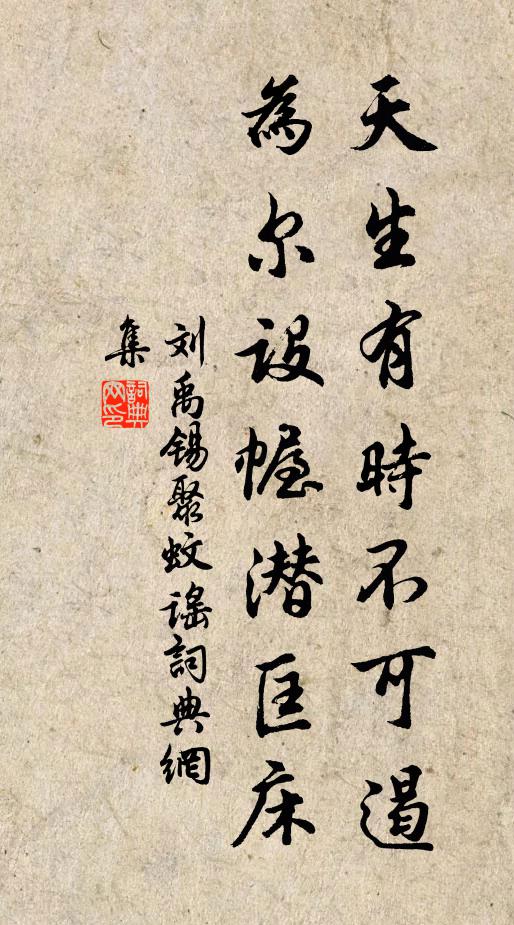 天生有時不可遏
為尔設幄潜匡床
刘禹锡聚蚊谣詞典網
集
詞典網印